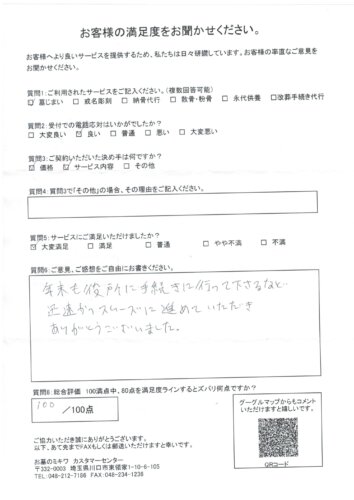 お客様の満足度をお聞かせください。
お客様へより良いサービスを提供するため、私たちは日々研鑽しています。お客様の率直なご意見を
お聞かせください。
質問1：ご利用されたサービスをご記入ください。（複数回答可能）
☑ 墓じまい □ 戒名彫刻 □ 納骨代行 □ 散骨・粉骨 □ 永代供養 □改葬手続き代行
質問2：受付での電話応対はいかがでしたか？
□ 大変良い ☑ 良い □ 普通 □ 悪い □ 大変悪い
質問3：ご契約いただいた決め手は何ですか？
☑ 価格 ☑ サービス内容 □ その他
質問4：質問3で「その他」の場合、その理由をご記入ください。
質問5：サービスにご満足いただけましたか？
☑ 大変満足 □ 満足 □ 普通 □ やや不満 □ 不満
質問6：ご意見、ご感想をご自由にお書きください。
年末も役所に手続きに行って下さるなど
迅速かつスムーズに進めていただき
ありがとうございました。
質問8：総合評価 100満点中、80点を満足度ラインするとズバリ何点ですか？
100 /100点
グーグルマップからもコメント
いただけますと嬉しいです。
QRコード
ご協力いただき誠にありがとうございます。
以下、あて先までFAXもしくは郵送いただけますと幸いです。
お墓のミキワ カスタマーセンター
〒332-0003 埼玉県川口市東領家1-10-6-105
TEL:048-212-7186 FAX:048-234-1236